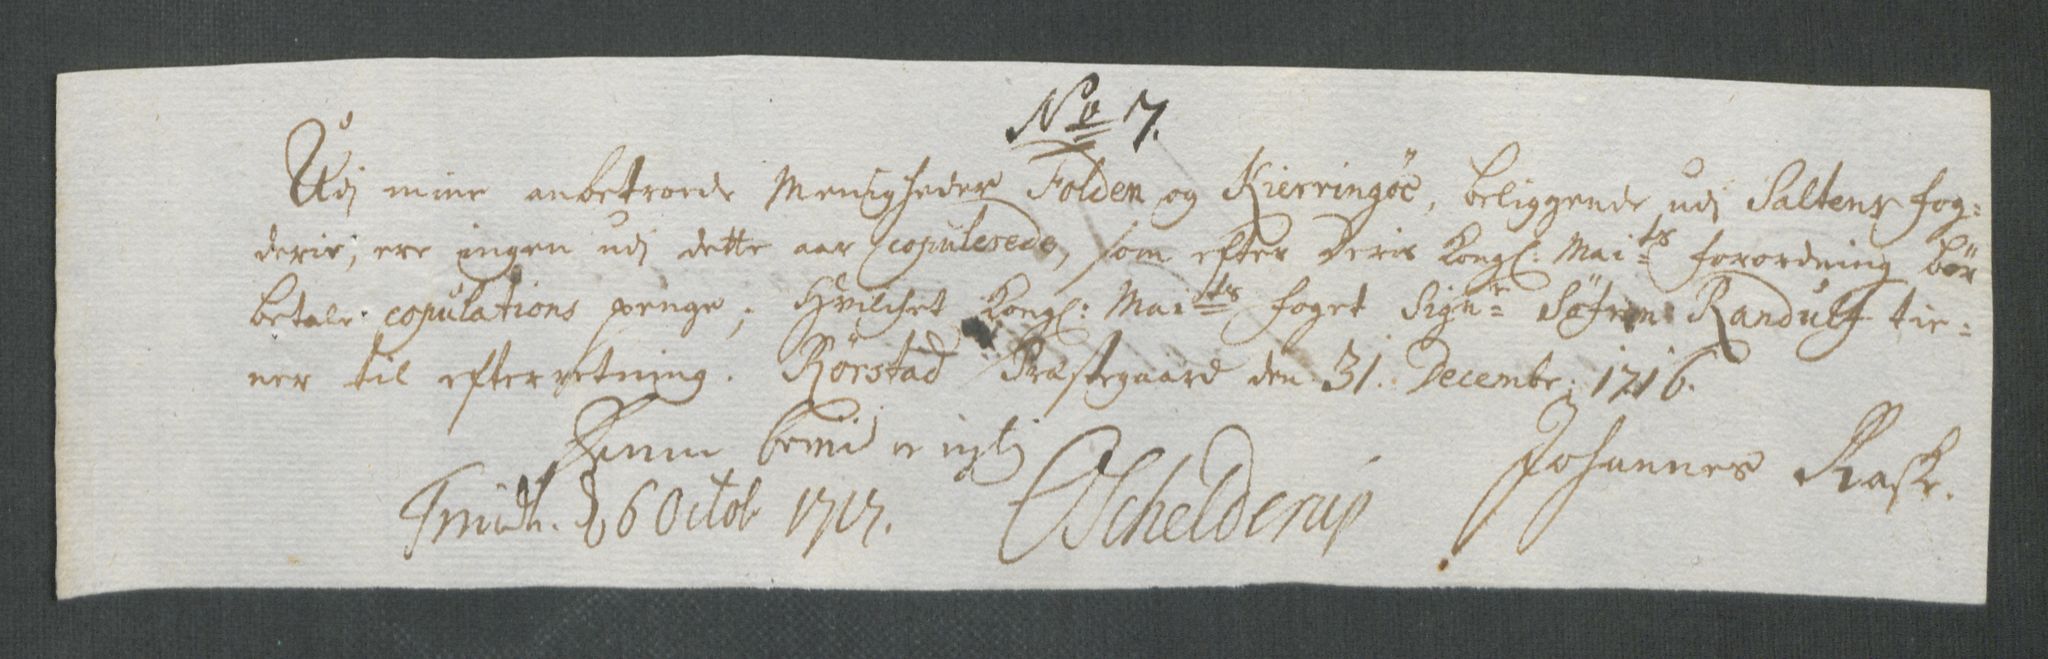 No 7.
Udj mine anbetroede Menigheder Folden og Kierringöe, beliggende udj Saltens fog=
derie, ere ingen udj dette aar copulerede, som efter Deris Kongl: Maits forordning bör
betale copulations penge; Hvilchet Kongl: Maits foget Signr Söfren Randulf tie=
ner til efterretning. Rörstad Præstegaard den 31. Decembr: 1716.
Johannes Rask.
Tnidh. d 6 Octob 1717.
Schelderup